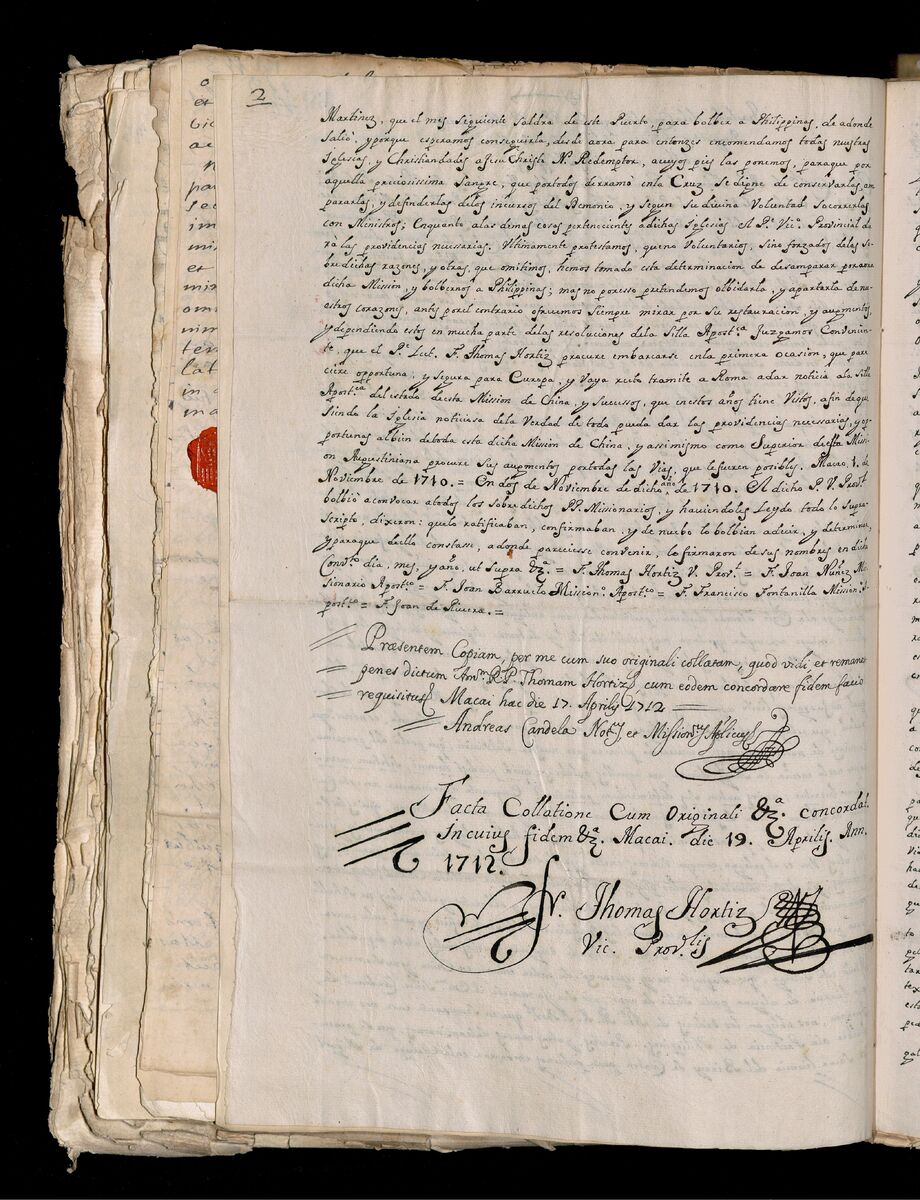 2
Martinez, que el mes siguiente saldra de este Puerto para bolber a Philippinas, de adonde
saliò; yporque esperamos conseguirla, desde aora para entonzes encomendamos todas nuestras
Iglesias, y Christiandades aJesu Christo N. Redemptor, acuyos pies las ponemos, paraque por
aquella preciosissima Sangre, que portodos derramò enla Cruz se digne de conservarlas, am
pararlas, y defenderlas delos incursos del Demonio, y segun su divina Voluntad socorrerlas
con Ministros; Enquanto alas demas cosas pertenecientes adichas Iglesias el P. Vic. Provincial da
rà las providencias necessarias. Vltimamente protestamos, queno Voluntarios, sino forzados delas so
bredichas razones, y otras, que omitimos, hemos tomado esta determinacion de desamparar poraora
dicha Mission, y bolbernos a Philippinas; mas no poresso pretendemos olbidarla, y apartarla de nu
estros corazones, antes porel contrario ofrecemos siempre mirar por su restauracion, y augmentos,
y dependiendo estos en mucha parte delas resoluciones dela Silla Apost.ca Juzgamos Convenien
te, que el P.e Lect. F. Thomas Hortiz procure embarcarse enla primera ocasion, que pare
ciere opportuna, y segura para Europa, y Vaya recto tramite a Roma adar noticia ala Silla
Apost.ca del estado desta Mission de China, y sucessos, que enestos años tiene Vistos, afin deque
siendo la Iglesia noticiosa dela Verdad de todo pueda dar las providencias necessarias, y op
portunas albien detoda esta dicha Mission de China, y assimismo como Superior desta Missi
on Augustiniana procure sus augmentos portodas las Vias, que le fueren posibles. Macao, 1. de
Noviembre de 1710. = En dos de Noviembre de dicho año de 1710. El dicho P. V. Prov.l
bolbiò aconvocar atodos los sobredichos PP. Missionarios, y haviendoles Leydo todo lo supra
scripto, dixeron: quelo ratificaban, confirmaban, y de nuebo lo bolbian adecir, y determinar,
yparaque dello constasse, adonde pareciesse convenir, lo firmaron de sus nombres en dicho
Conv.to dia, mes, y año, ut supra &a. = F. Thomas Hortiz V. Prov.l = F. Joan Nuñez Mi
sionario Apost.co = F. Joan Barruelo Mission. Apost.co = F. Francisco Fontanilla Mission. A
post.co = F. Joan de Rivera. =
Præsentem Copiam, per me cum suo originali collatam, quod vidi, et remanet
penes dictum Am. R. P. Thomam Hortiz, cum eodem concordare fidem facio
requisitus. Macai hac die 17. Aprilis 1712
Andreas Candela Not.s, et Mission.us Aplicus
Facta Collatione Cum Originali &a. concordat.
In cuius fidem &a. Macai. die 19. Aprilis. Ann.
1712.
Fr. Thomas Hortiz
Vic. Prov.lis